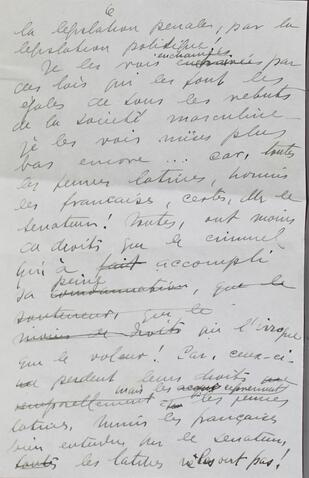 6
la législation pénale, par la
législation politique.
Je les vois enchaînées par
des lois qui les font les
égales de tous les rebuts
de la société masculine.
Je les vois mises plus
bas encore ... car, toutes
les femmes latines, hormis
les françaises, certes, M. le
Senateur! toutes, ont moins
de droits que le criminel
qui a fait accompli
sa peine condamnation, que le
souteneur, que le
moins de droits ou l'ivrogne
que le voleur! Car, ceux-ci
perdent leurs droits
temporellement mais les reprennent les femmes
latines, hormis les françaises
bien entendu M. le Senateur,
toutes les latines n'en ont pas!